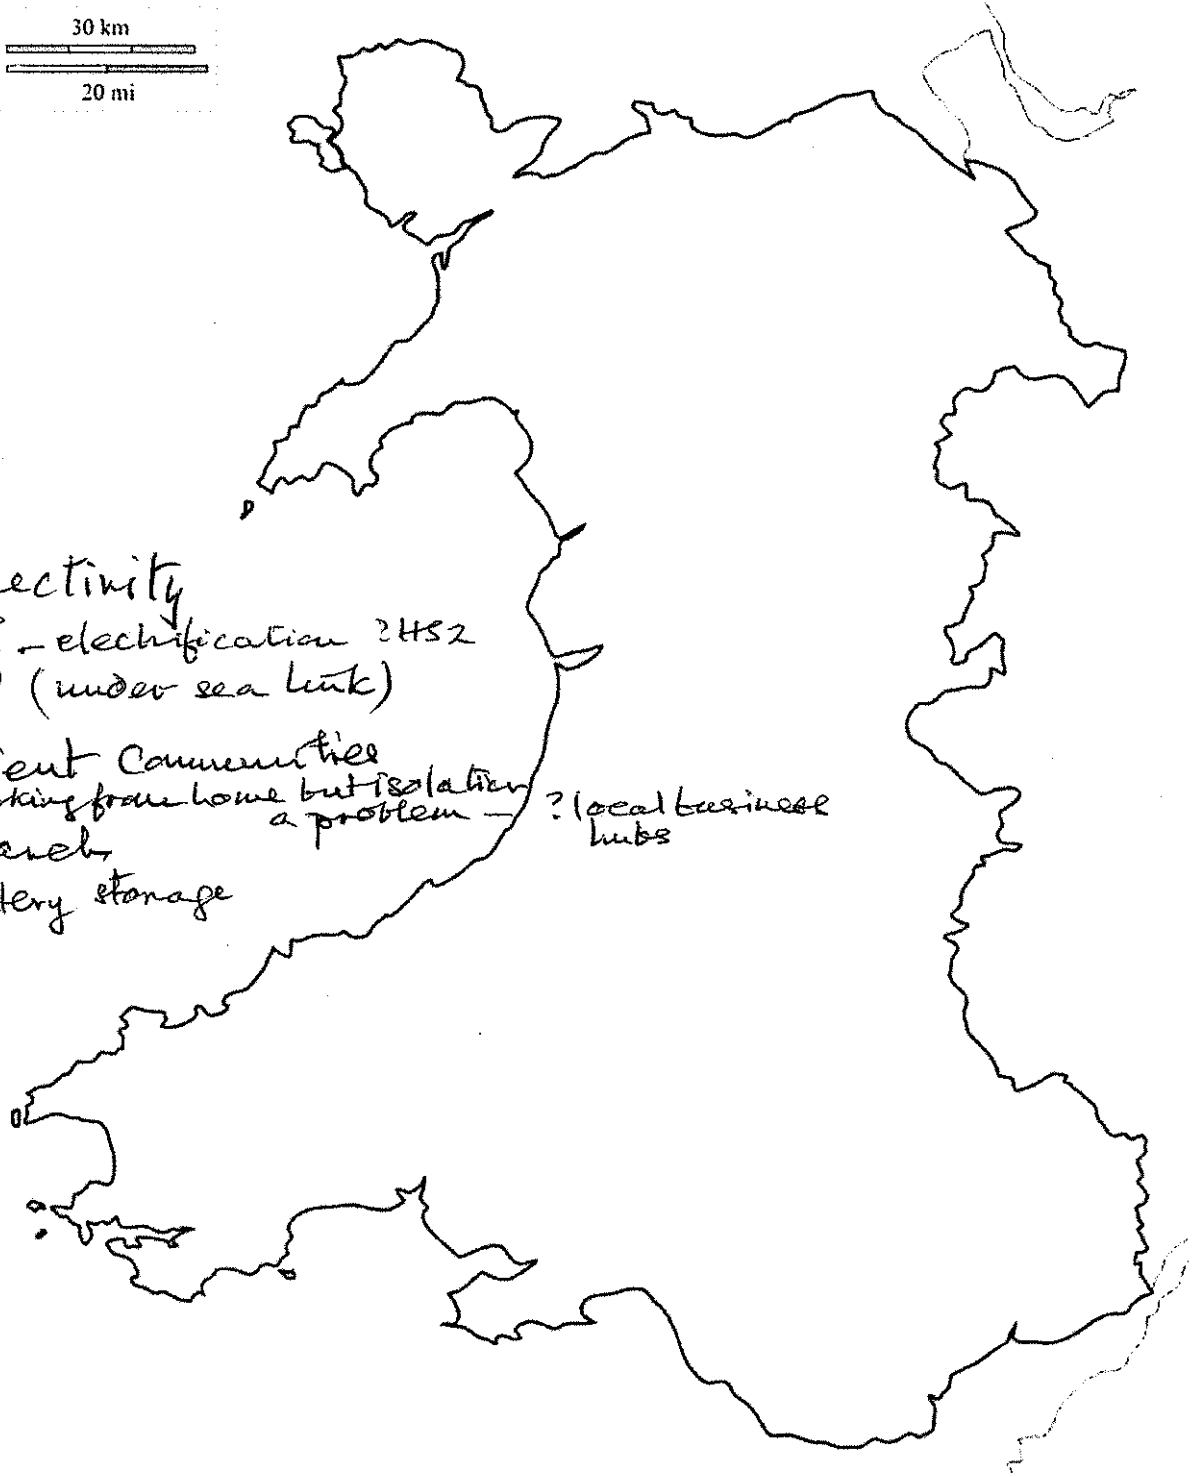 30 km
20 mi
ectivity
- electrification ? HS2
(under sea link)
ient Communities
king from home but isolation
a problem - ? local business
hubs
tery storage